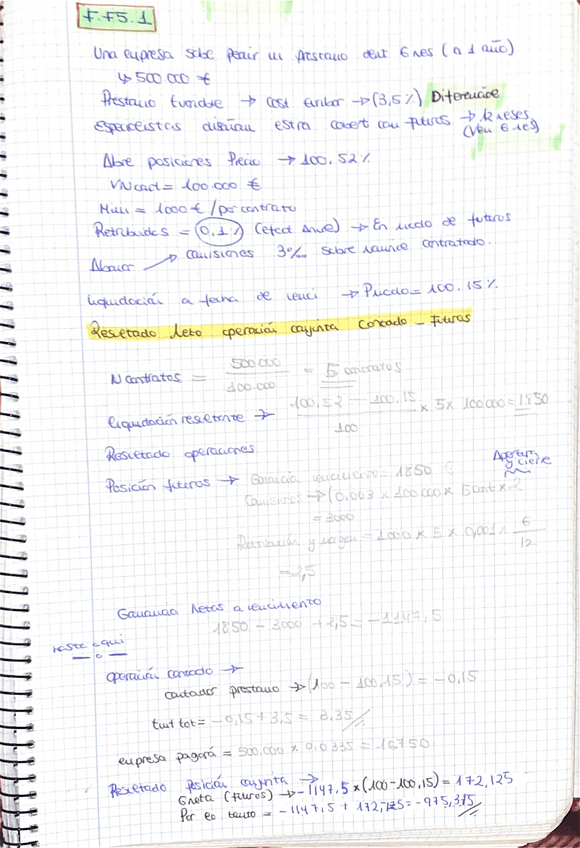 F.F5.1
Una empresa sabe pedir un préstamo dent 6 mes (a 1 año)
↳ 500.000 €
Préstamo Euribor → cost euribor → (3,5%) Diferencia
especialistas diseñan estra cobert con futuros → 12 meses
(Ven 6 mes)
Abre posiciones Precio → 100.52%
VN cont = 100.000 €
= 1000 € / por contrato
Retribuidos = (0,1%) → En mcdo de futuros
Abonar → comisiones 3‰ sobre contratado.
Liquidación a fecha de venci → P mcdo = 100.15%
Resultado Neto operación conjunta Contado - Futuros
N contratos = 500.000 / 100.000 = 5 contratos
Liquidación resultante → 100,52 - 100.15 / 100 × 5 × 100000 = 1850
Resultado operaciones
Apertura y cierre
Posición futuros → Ganancia vencimiento = 1850 €
Comisiones → (0,003 × 100000 × 5 cont × 2
= 3000
= 1000 × 5 × 0,001 × 6/12
= 2,5
Ganancia Netas a vencimiento
1850 - 3000 + 2,5 = -1147,5
hasta aquí
operación contado →
préstamo → (100 - 100,15) = -0,15
tot = -0,15 + 3,5 = 3,35
empresa pagará = 500.000 × 0,0335 = 16750
Resultado posición conjunta →
G neta (futuros) → -1147,5 × (100-100,15) = 172,125
Por lo tanto = -1147,5 + 172,125 = -975,375